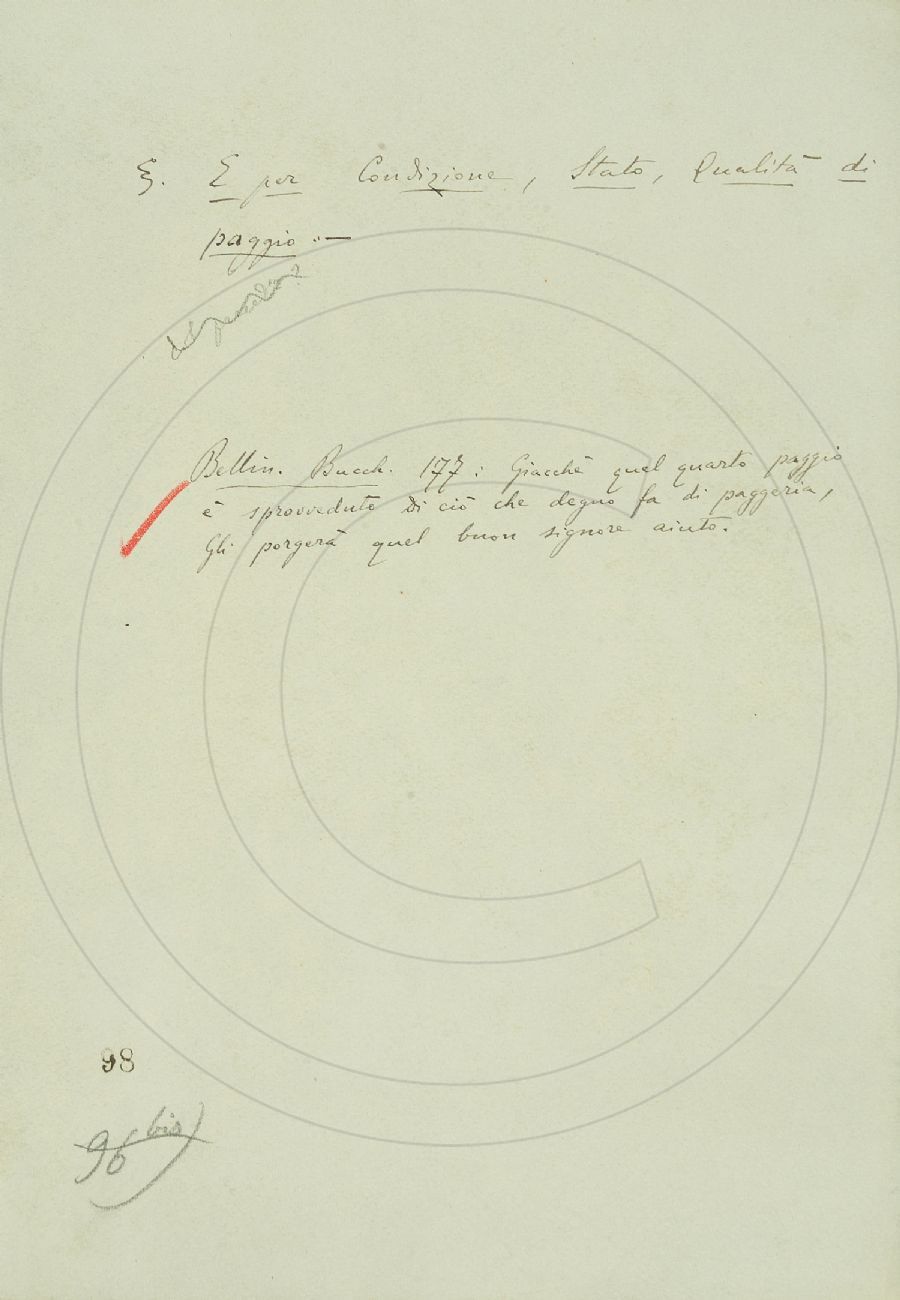 §. E per Condizione, Stato, Qualità di
paggio :—
Bellin. Bucch. 177: Giacchè quel quarto paggio
è sprovveduto di ciò che degno fa di paggeria,
Gli porgerà quel buon signore aiuto.
98
96 bis